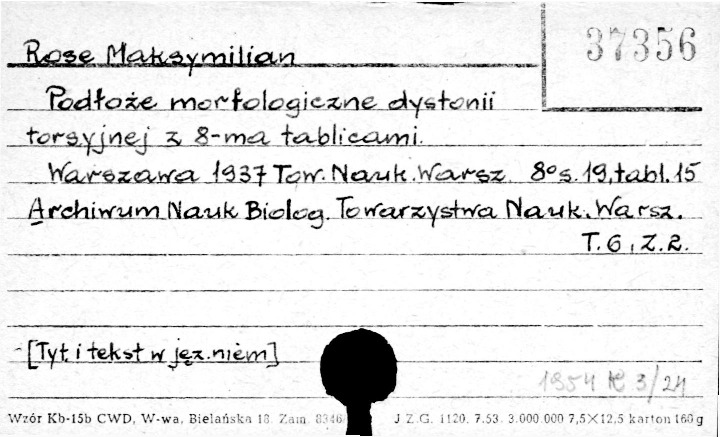 37356
Rose Maksymilian
Podłoże morfologiczne dystonii
torsyjnej z 8-ma tablicami.
Warszawa 1937 Tow. Nauk. Warsz. 8° s. 19, tabl. 15
Archiwum Nauk Biolog. Towarzystwa Nauk. Warsz.
T. 6, Z. 2.
[Tyt. i tekst w jęz. niem]
1954 3/24
Wzór Kb-15b CWD, W-wa, Bielańska 18. Zam. 8346 J.Z.G. 1120. 7.53. 3.000.000 7,5×12,5 karton 160 g